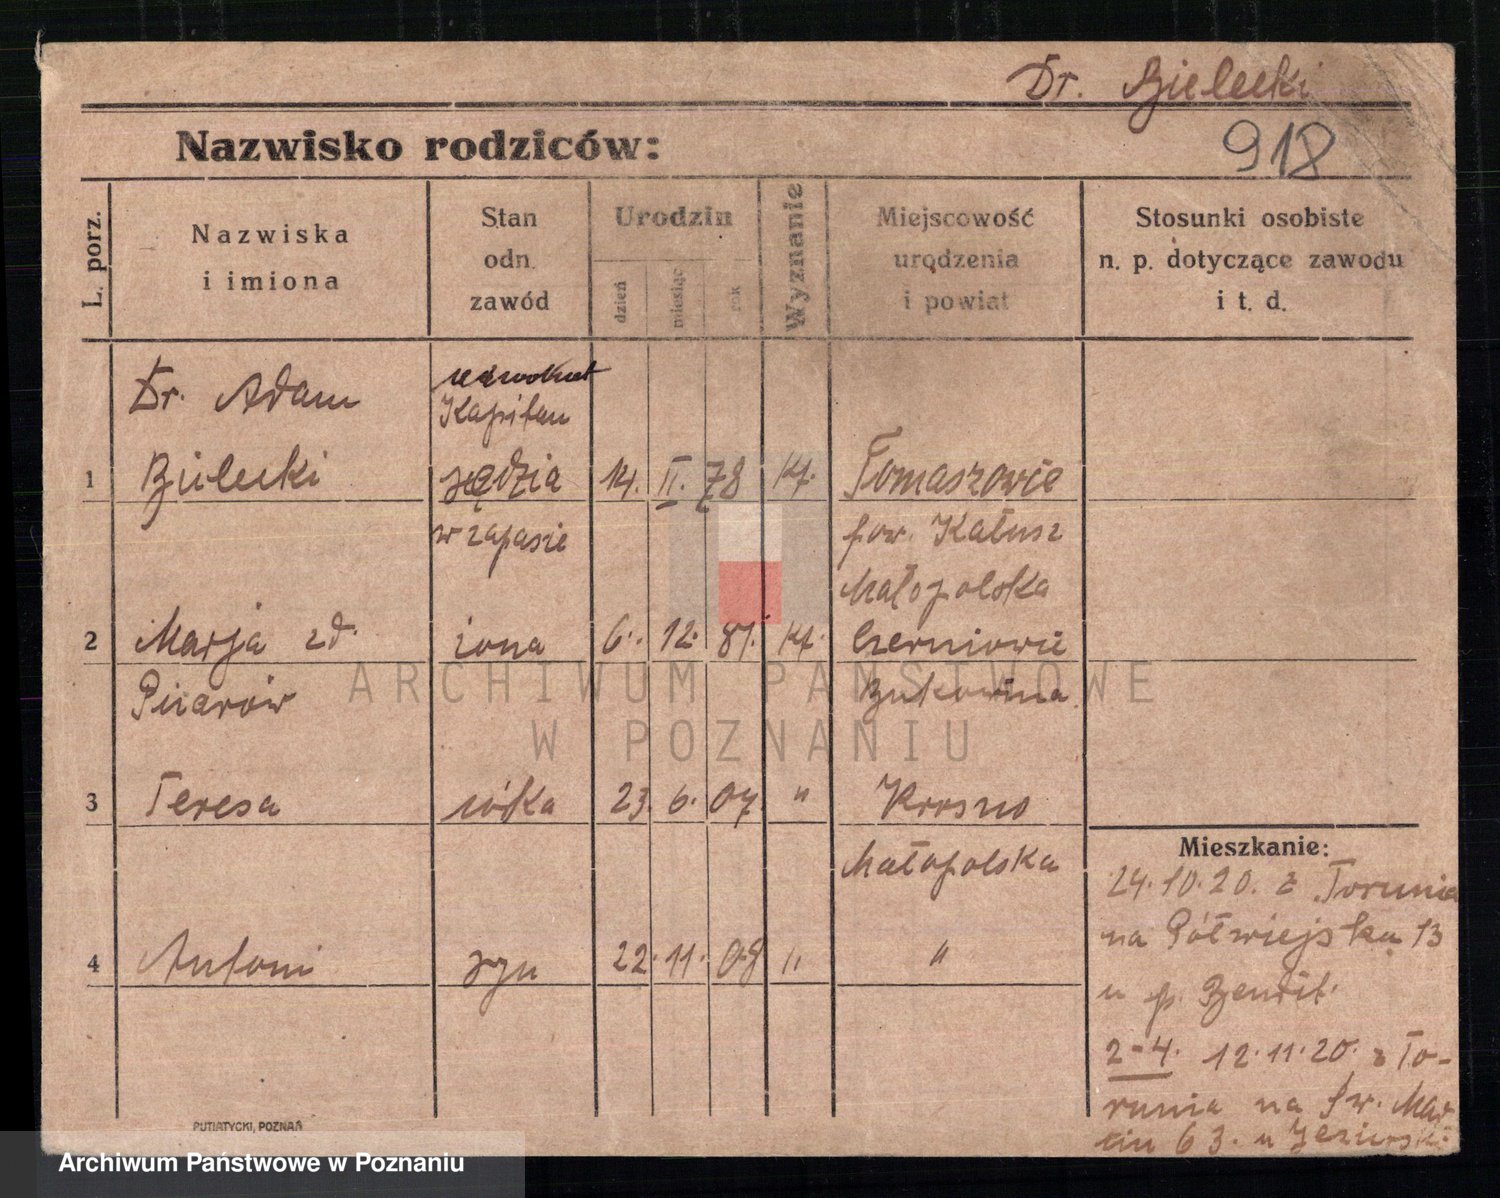 Dr. Bielecki
918
Nazwisko rodziców:
L. porz.
Nazwiska
i imiona
Stan
odn.
zawód
Urodzin
dzień
miesiąc
rok
Wyznanie
Miejscowość
urodzenia
i powiat
Stosunki osobiste
n. p. dotyczące zawodu
i t. d.
adwokat
Dr. Adam Kapitan
1 Bielecki sędzia 14. II. 78 kt. Tomaszowie
w zapasie pow. Kałusz
Małopolska
2 Marja zd. żona 6. 12. 81. kt. Czerniowce
Bukowina
3 Teresa córka 23. 6. 07. " Krosno
Małopolska
4 Antoni syn 22. 11. 08 " "
Mieszkanie:
24.10.20. z Torunia
na Półwiejską 13
u p. Bendit.
2-4. 12.11.20. z To-
runia na św. Mar
cin 63. u
PUTIATYCKI, POZNAŃ
ARCHIWUM PAŃSTWOWE
W POZNANIU
Archiwum Państwowe w Poznaniu